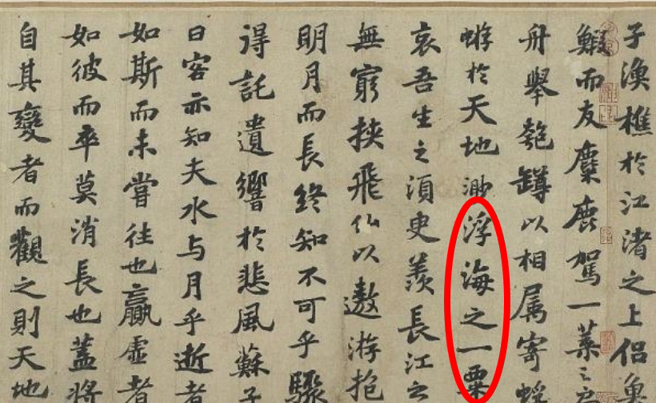 子漁樵於江渚之上侶魚
鰕而友麋鹿駕一葉之扁
舟舉匏罇以相属寄蜉
蝣於天地渺浮海之一粟
哀吾生之須臾羨長江之
無窮挾飛仙以遨游抱
明月而長終知不可乎驟
得託遺響於悲風蘇子
曰客亦知夫水与月乎逝者
如斯而未嘗往也贏虛者
如彼而卒莫消長也蓋將
自其變者而觀之則天地